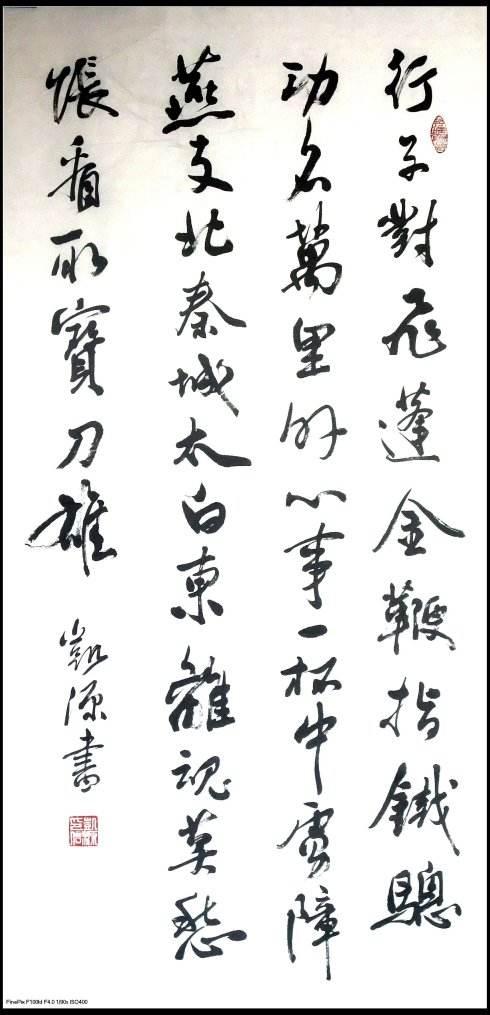 行子對飛蓬金鞭指鐵驄
功名萬里外心事一杯中虜障
燕支北秦城太白東離魂莫愁
悵看取寶刀雄
凱源書
FinePix F100fd F4.0 1/90s ISO400